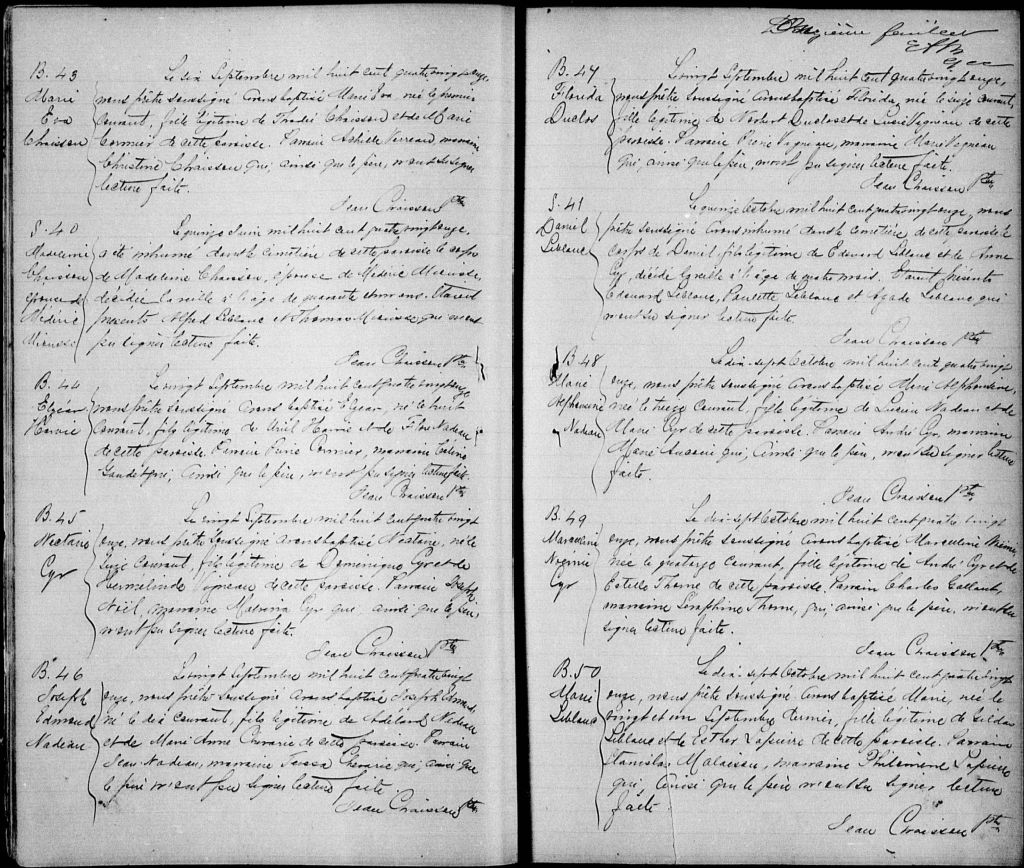 B. 43
Marie
Eva
Chaisson
Le six Septembre mil huit cent quatre vingt onze,
nous prêtre soussigné avons baptisé Marie Eva née le premier
courant, fille légitime de Chaisson et de Marie
Cormier de cette paroisse. Parrain marraine
Christine Chaisson qui, ainsi que le père, n'ont su signer
lecture faite.
Jean Chaisson Ptre
S. 40
Madeleine
Chaisson
épouse de
Médéric
Le quinze Juin mil huit cent quatre vingt onze,
a été inhumé dans le cimetière de cette paroisse le corps
de Madeleine Chaisson, épouse de Médéric
décédée la veille à l'âge de quarante et un ans. Etaient
présents Alfred Leblanc et Thomas qui n'ont
pu signer lecture faite.
Jean Chaisson Ptre
B. 44
Elzéar
Harvie
Le vingt Septembre mil huit cent quatre vingt onze
nous prêtre soussigné avons baptisé Elzéar, né le huit
courant, fils légitime de Harvie et de Nadeau
de cette paroisse. Parrain Cormier, marraine
qui, ainsi que le père, n'ont pu signer lecture faite.
Jean Chaisson Ptre
B. 45
Nectaire
Cyr
Le vingt Septembre mil huit cent quatre vingt
onze, nous prêtre soussigné avons baptisé Nectaire, né le
seize courant, fils légitime de Domenique Cyr et de
Hermelinde Vigneau de cette paroisse. Parrain Joseph
Noël, marraine Cyr qui ainsi que le père,
n'ont pu signer lecture faite.
Jean Chaisson Ptre
B. 46
Joseph
Edmond
Nadeau
Le vingt Septembre mil huit cent quatre vingt
onze, nous prêtre soussigné avons baptisé Joseph Edmond,
né le dix courant, fils légitime de Adélard Nadeau
et de Marie Anne Chevarie de cette paroisse. Parrain
Jean Nadeau, marraine Chevarie qui, ainsi que
le père n'ont pu signer lecture faite
Jean Chaisson Ptre
Onzième feuillet
B. 47
Florida
Duclos
Le vingt Septembre mil huit cent quatre vingt onze,
nous prêtre soussigné avons baptisé Florida, née le seize courant,
fille légitime de Norbert Duclos et de Lucie Vigneau de cette
paroisse. Parrain Vigneau, marraine Marie Vigneau
qui, ainsi que le père, n'ont pu signer lecture faite.
Jean Chaisson Ptre
S. 41
Daniel
Leblanc
Le quinze Octobre mil huit cent quatre vingt onze, nous
prêtre soussigné avons inhumé dans le cimetière de cette paroisse le
corps de Daniel, fils légitime de Edouard Leblanc et de Anne
Cyr, décédé la veille à l'âge de quatre mois. Etaient présents
Edouard Leblanc, Leblanc et Agade Leblanc qui
n'ont su signer lecture faite.
Jean Chaisson Ptre
B. 48
Marie
Alphonsine
Nadeau
Le dix-sept Octobre mil huit cent quatre vingt
onze, nous prêtre soussigné avons baptisé Marie Alphonsine,
née le treize courant, fille légitime de Lucien Nadeau et de
Marie Cyr de cette paroisse. Parrain André Cyr, marraine
Marie qui, ainsi que le père, n'ont su signer lecture
faite.
Jean Chaisson Ptre
B. 49
Marceline
Noemie
Cyr
Le dix-sept Octobre mil huit cent quatre vingt
onze, nous prêtre soussigné avons baptisé Marceline Noemie,
née le quatorze courant, fille légitime de André Cyr et de
Estelle Thorne de cette paroisse. Parrain Charles Gallant,
marraine Seraphine Thorne, qui, ainsi que le père, n'ont su
signer lecture faite.
Jean Chaisson Ptre
B. 50
Marie
Leblanc
Le dix-sept Octobre mil huit cent quatre vingt
onze, nous prêtre soussigné avons baptisé Marie, née le
vingt et un Septembre dernier, fille légitime de Gildas
Leblanc et de Esther Lapierre de cette paroisse. Parrain
Stanislas Malaison, marraine Philomène Lapierre
qui, ainsi que le père n'ont su signer lecture
faite.
Jean Chaisson Ptre